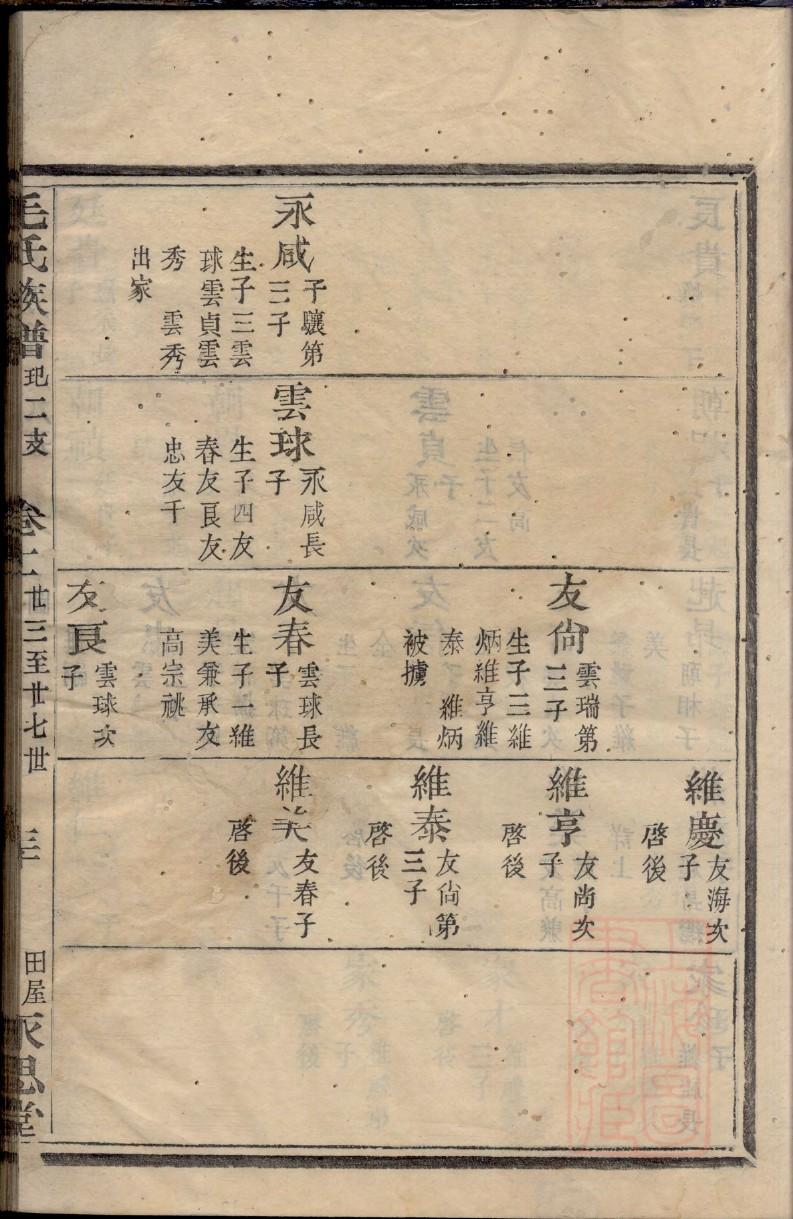 永咸
予驤第
三子
生子三雲
球雲貞雲
秀　雲秀
出家
雲球
永咸長
子
生子四友
春友良友
忠友千
友尙
雲瑞第
三子
生子三維
炳維亨維
泰　維炳
被擄
友春
雲球長
子
生子一維
美兼承友
高宗祧
友良
雲球次
子
維慶
友海次
子
啓後
維亨
友尚次
子
啓後
維泰
友尙第
三子
啓後
維美
友春子
啓後
毛氏族譜
玘二支
卷二
廿三至廿七世
三
田屋
永思堂